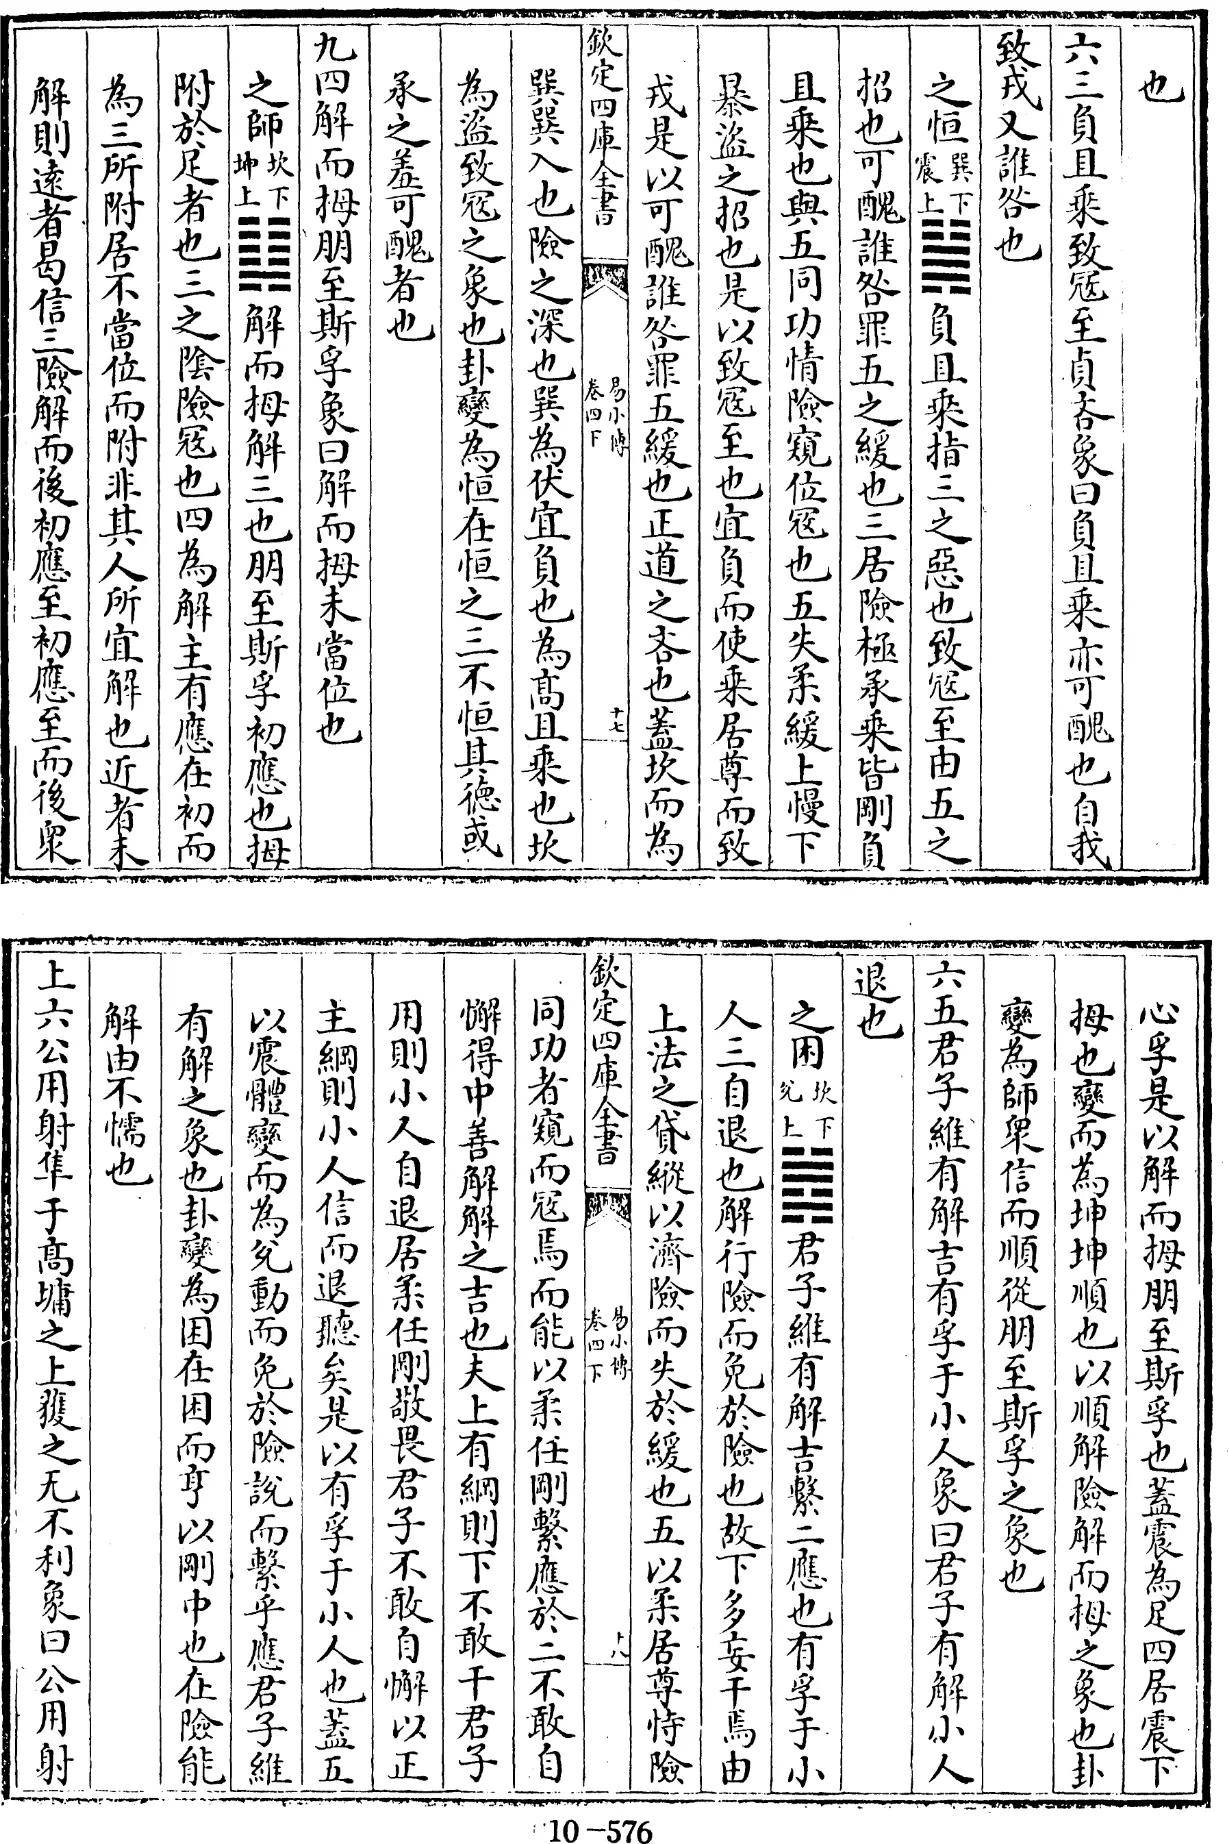 也
六三負且乘致寇至貞吝象曰負且乘亦可醜也自我
致戎又誰咎也
之恒巽下震上負且乘指三之惡也致寇至由五之
招也可醜誰咎罪五之緩也三居險極承乘皆剛負
且乘也與五同功情險窺位寇也五失柔緩上慢下
暴盜之招也是以致寇至也宜負而使乘居尊而致
戎是以可醜誰咎罪五緩也正道之吝也蓋坎而為
欽定四庫全書
易小傳
卷四下
十七
巽巽入也險之深也巽為伏宜負也為髙且乘也坎
為盜致寇之象也卦變為恒在恒之三不恒其德或
承之羞可醜者也
九四解而拇朋至斯孚象曰解而拇未當位也
之師坎下坤上解而拇解三也朋至斯孚初應也拇
附於足者也三之陰險寇也四為解主有應在初而
為三所附居不當位而附非其人所宜解也近者未
解則逺者曷信三險解而後初應至初應至而後衆
心孚是以解而拇朋至斯孚也蓋震為足四居震下
拇也變而為坤坤順也以順解險解而拇之象也卦
變為師衆信而順從朋至斯孚之象也
六五君子維有解吉有孚于小人象曰君子有解小人
退也
之困坎下兊上君子維有解吉繫二應也有孚于小
人三自退也解行險而免於險也故下多妄干焉由
上法之貸縱以濟險而失於緩也五以柔居尊恃險
欽定四庫全書
易小傳
卷四下
十八
同功者窺而寇焉而能以柔任剛繫應於二不敢自
懈得中善解解之吉也夫上有綱則下不敢干君子
用則小人自退居柔任剛敬畏君子不敢自懈以正
主綱則小人信而退聽矣是以有孚于小人也蓋五
以震體變而為兊動而免於險說而繫乎應君子維
有解之象也卦變為困在困而亨以剛中也在險能
解由不懦也
上六公用射隼于髙墉之上獲之无不利象曰公用射
10-576